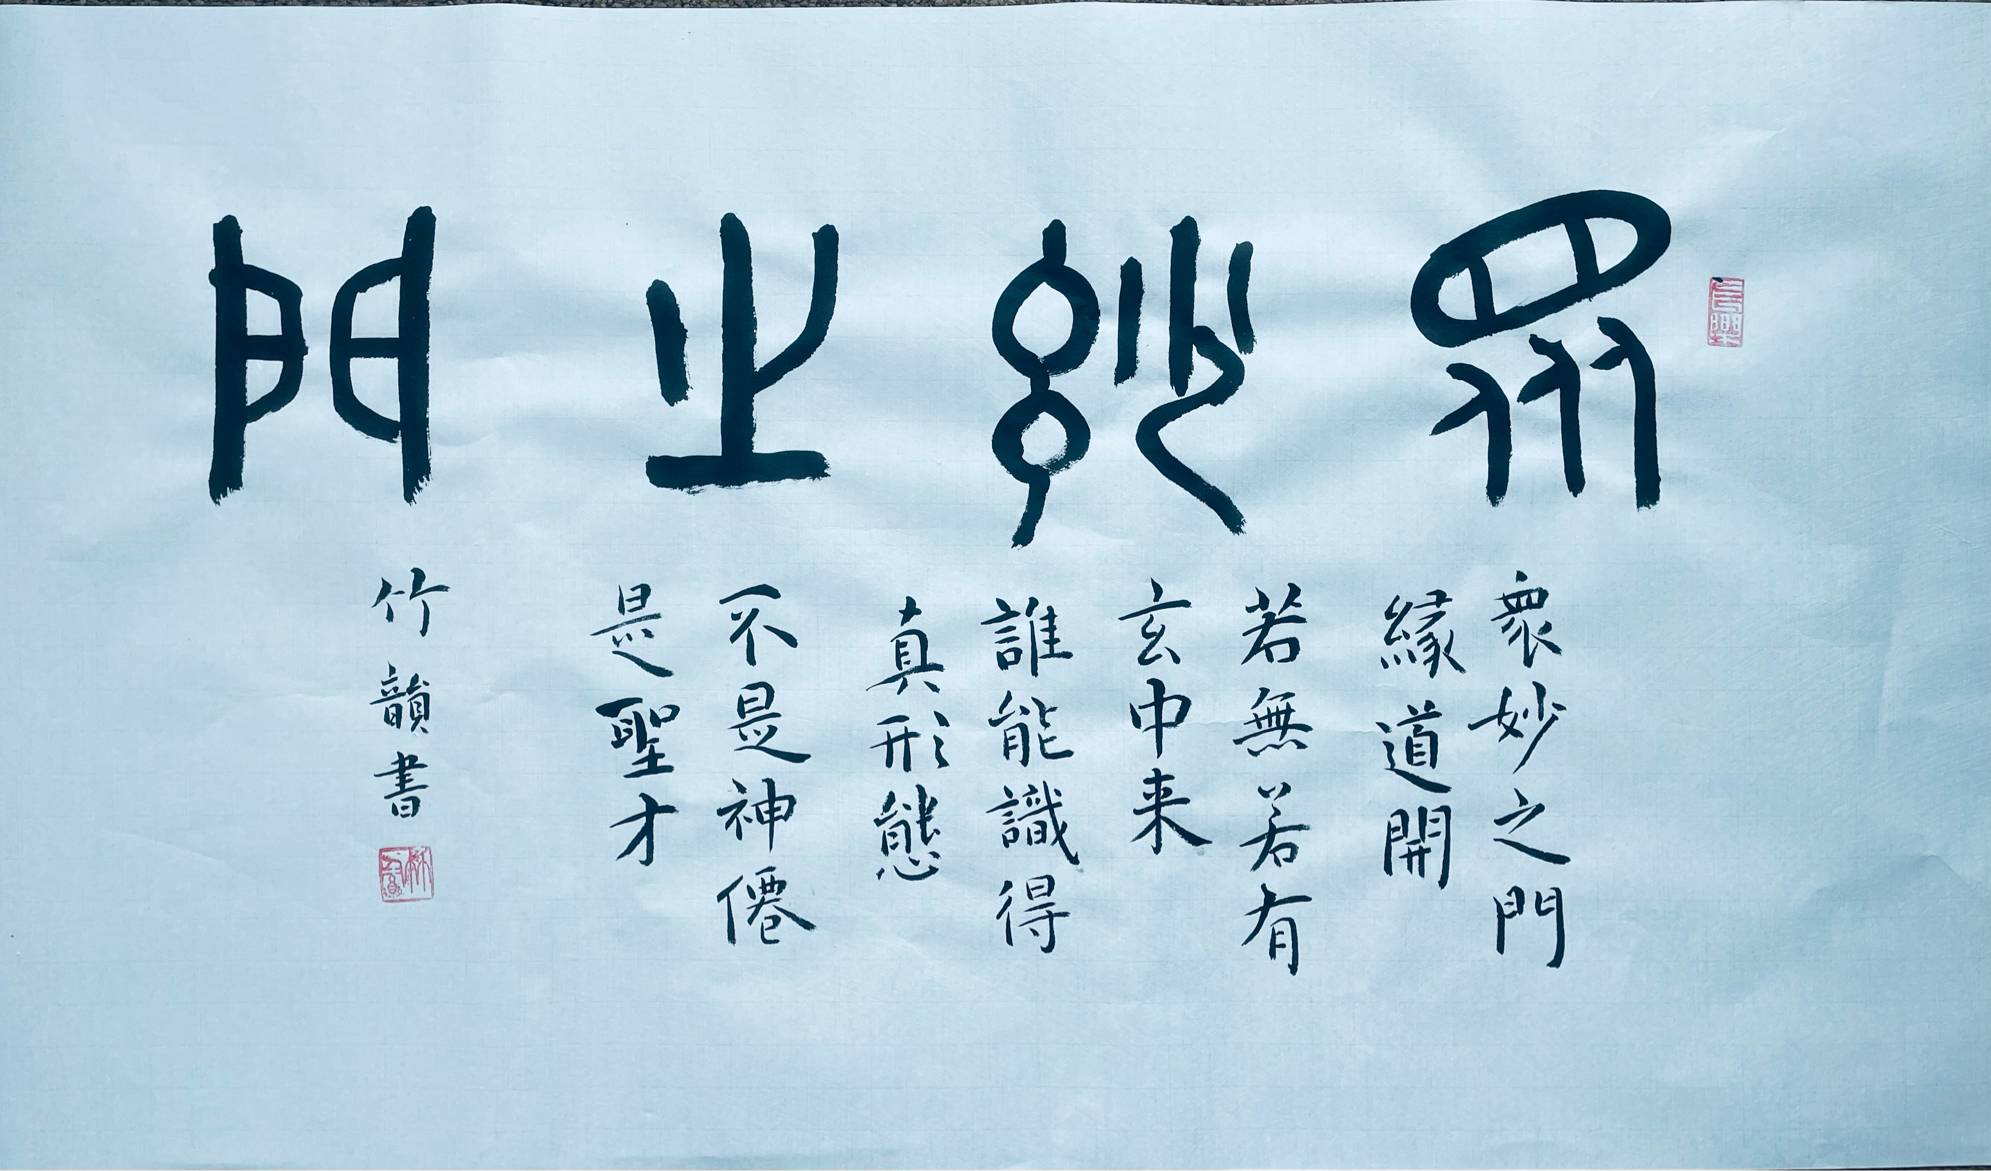 眾妙之門
眾妙之門
緣道開
若無若有
玄中来
誰能識得
真形態
不是神僊
是聖才
竹韻書